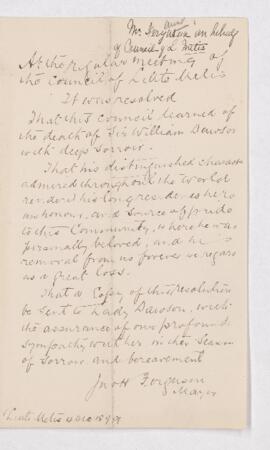 Mr Ferguson and on behalf
of Council of L. Metis
At the regular meeting of
the Council of Little Metis
It was resolved
That this Council learned of
the death of Sir William Dawson
with deep sorrow.
That his distinguished character
admired throughout the world
rendered his long residence here
an honour, and source of pride
to this Community, where he was
personally beloved, and his
removal from us forever we regard
as a great loss.
That a Copy of this resolution
be sent to Lady Dawson, with
the assurance of our profound
sympathy with her in this season
of sorrow and bereavement
Jno H Ferguson
Mayor
Little Metis 4 Dec 1899